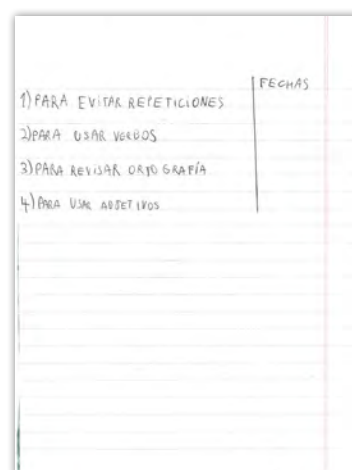 FECHAS
1) PARA EVITAR REPETICIONES
2) PARA USAR VERBOS
3) PARA REVISAR ORTOGRAFÍA
4) PARA USAR ADJETIVOS